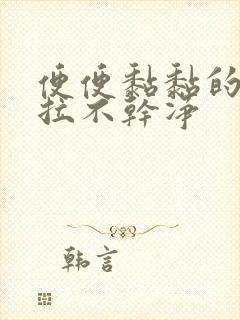 便便黏黏的
拉不幹淨
韩言